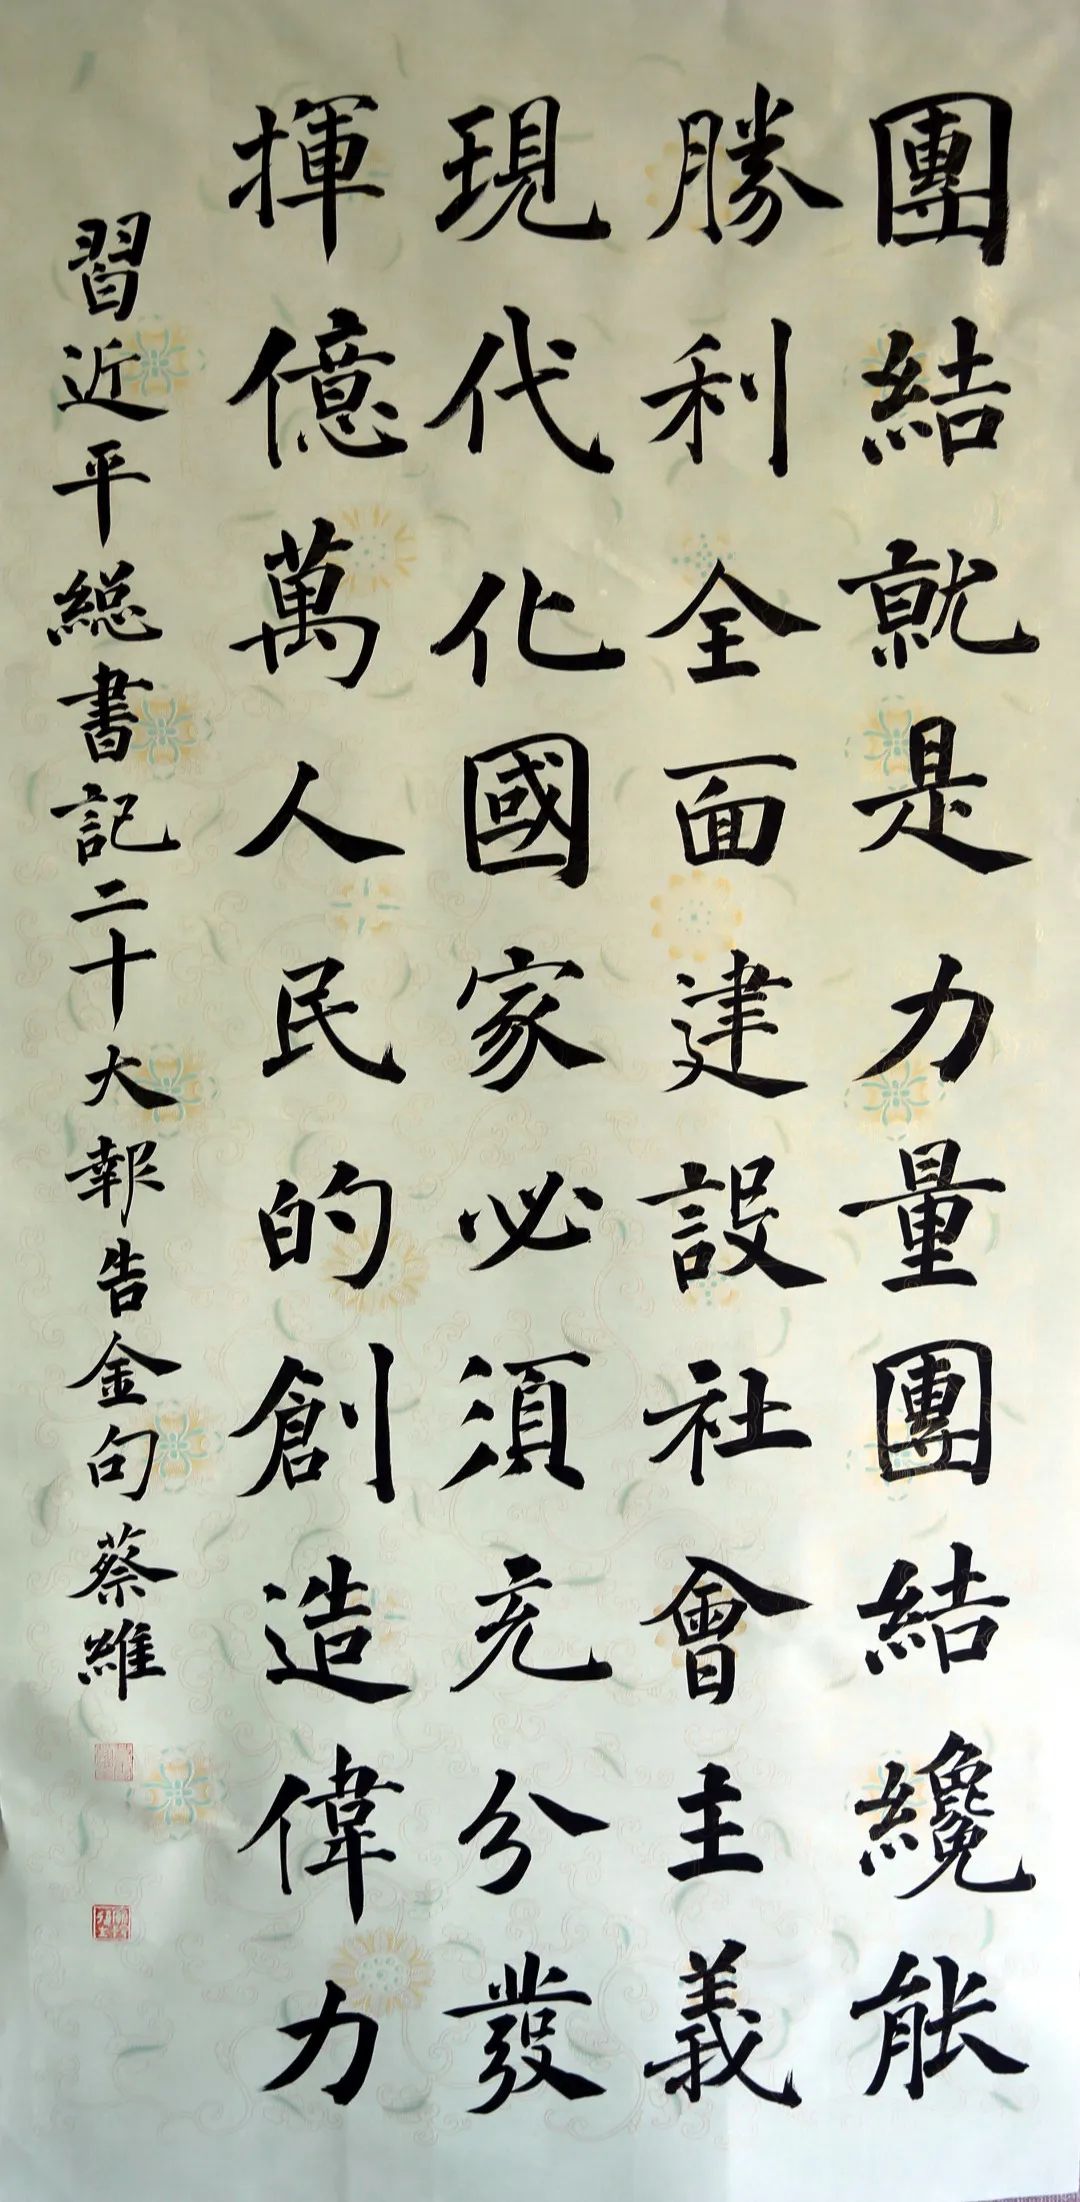 團結就是力量團結纔能
勝利全面建設社會主義
現代化國家必須充分發
揮億萬人民的創造偉力
習近平総書記二十大報告金句蔡維